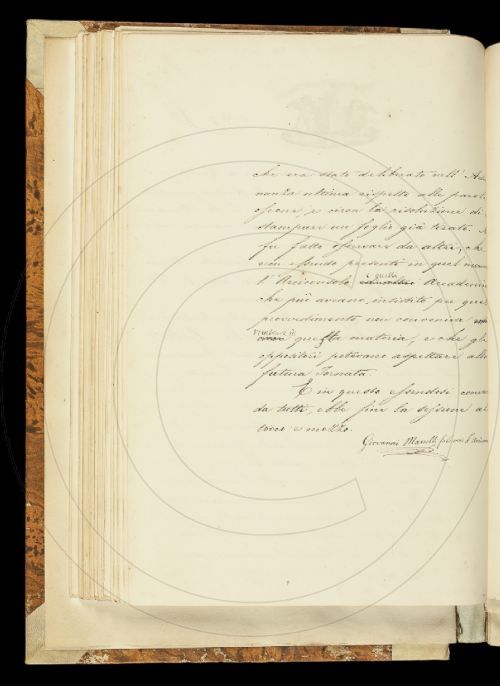 che era stato deliberato nell' Adu
nanza ultima rispetto alle parol
e circa la risoluzione di
stampare un foglio già tirato.
fu fatto osservare da altri, che
non essendo presenti in quel
l' Arciconsolo e quelli Accademi
che più avevano insistito per quel
provvedimento, non conveniva
questa materia, e che gli
oppositori potevano aspettare alla
futura Tornata.
E in questo essendosi conve
da tutti, ebbe fine la sessione al
tocco e mezzo.
Giovanni